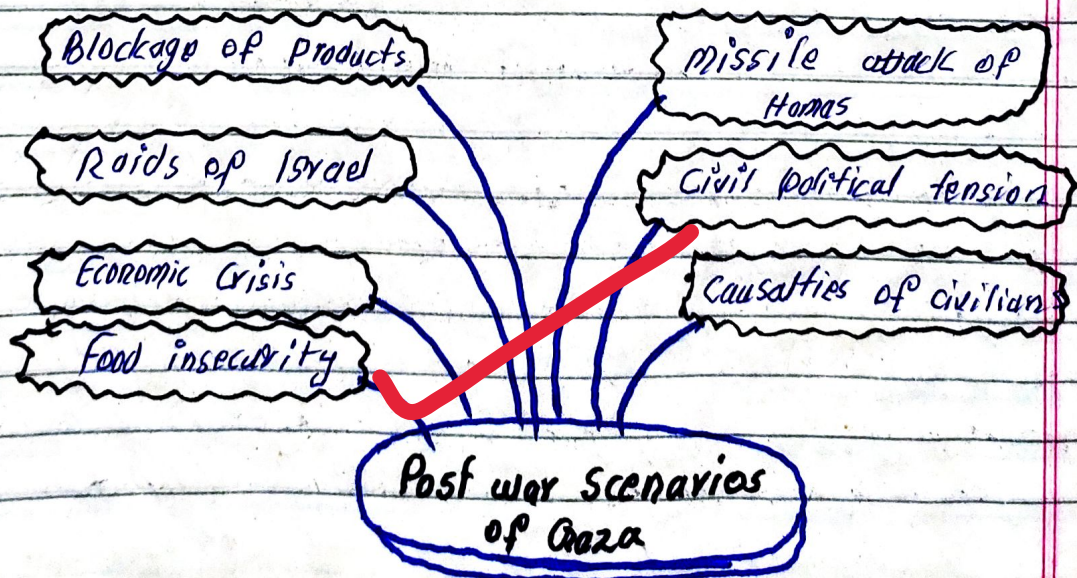 Blockage of Products
Raids of Israel
Economic Crisis
Food insecurity
Missile attack of
Hamas
Civil Political tension
Causalties of civilian
Post war Scenarios
of Gaza